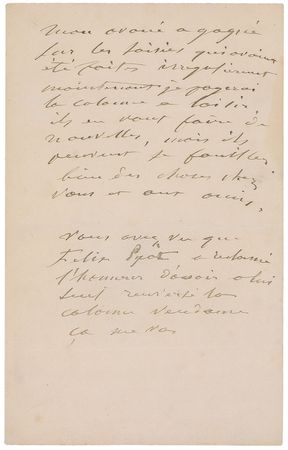 mon avoué a gagné
sur les saisies qui avaient
été faites irregulierement
maintenant je payerai
la colonne a loisir
ils en vont faire de
nouvelles, mais ils
peuvent se fouiller
bien des choses chez
vous et aux amis,
vous avez vu que
Felix Pyat a reclamé
l'honneur d'avoir a lui
seul renversé la
colonne vendome
ça me va